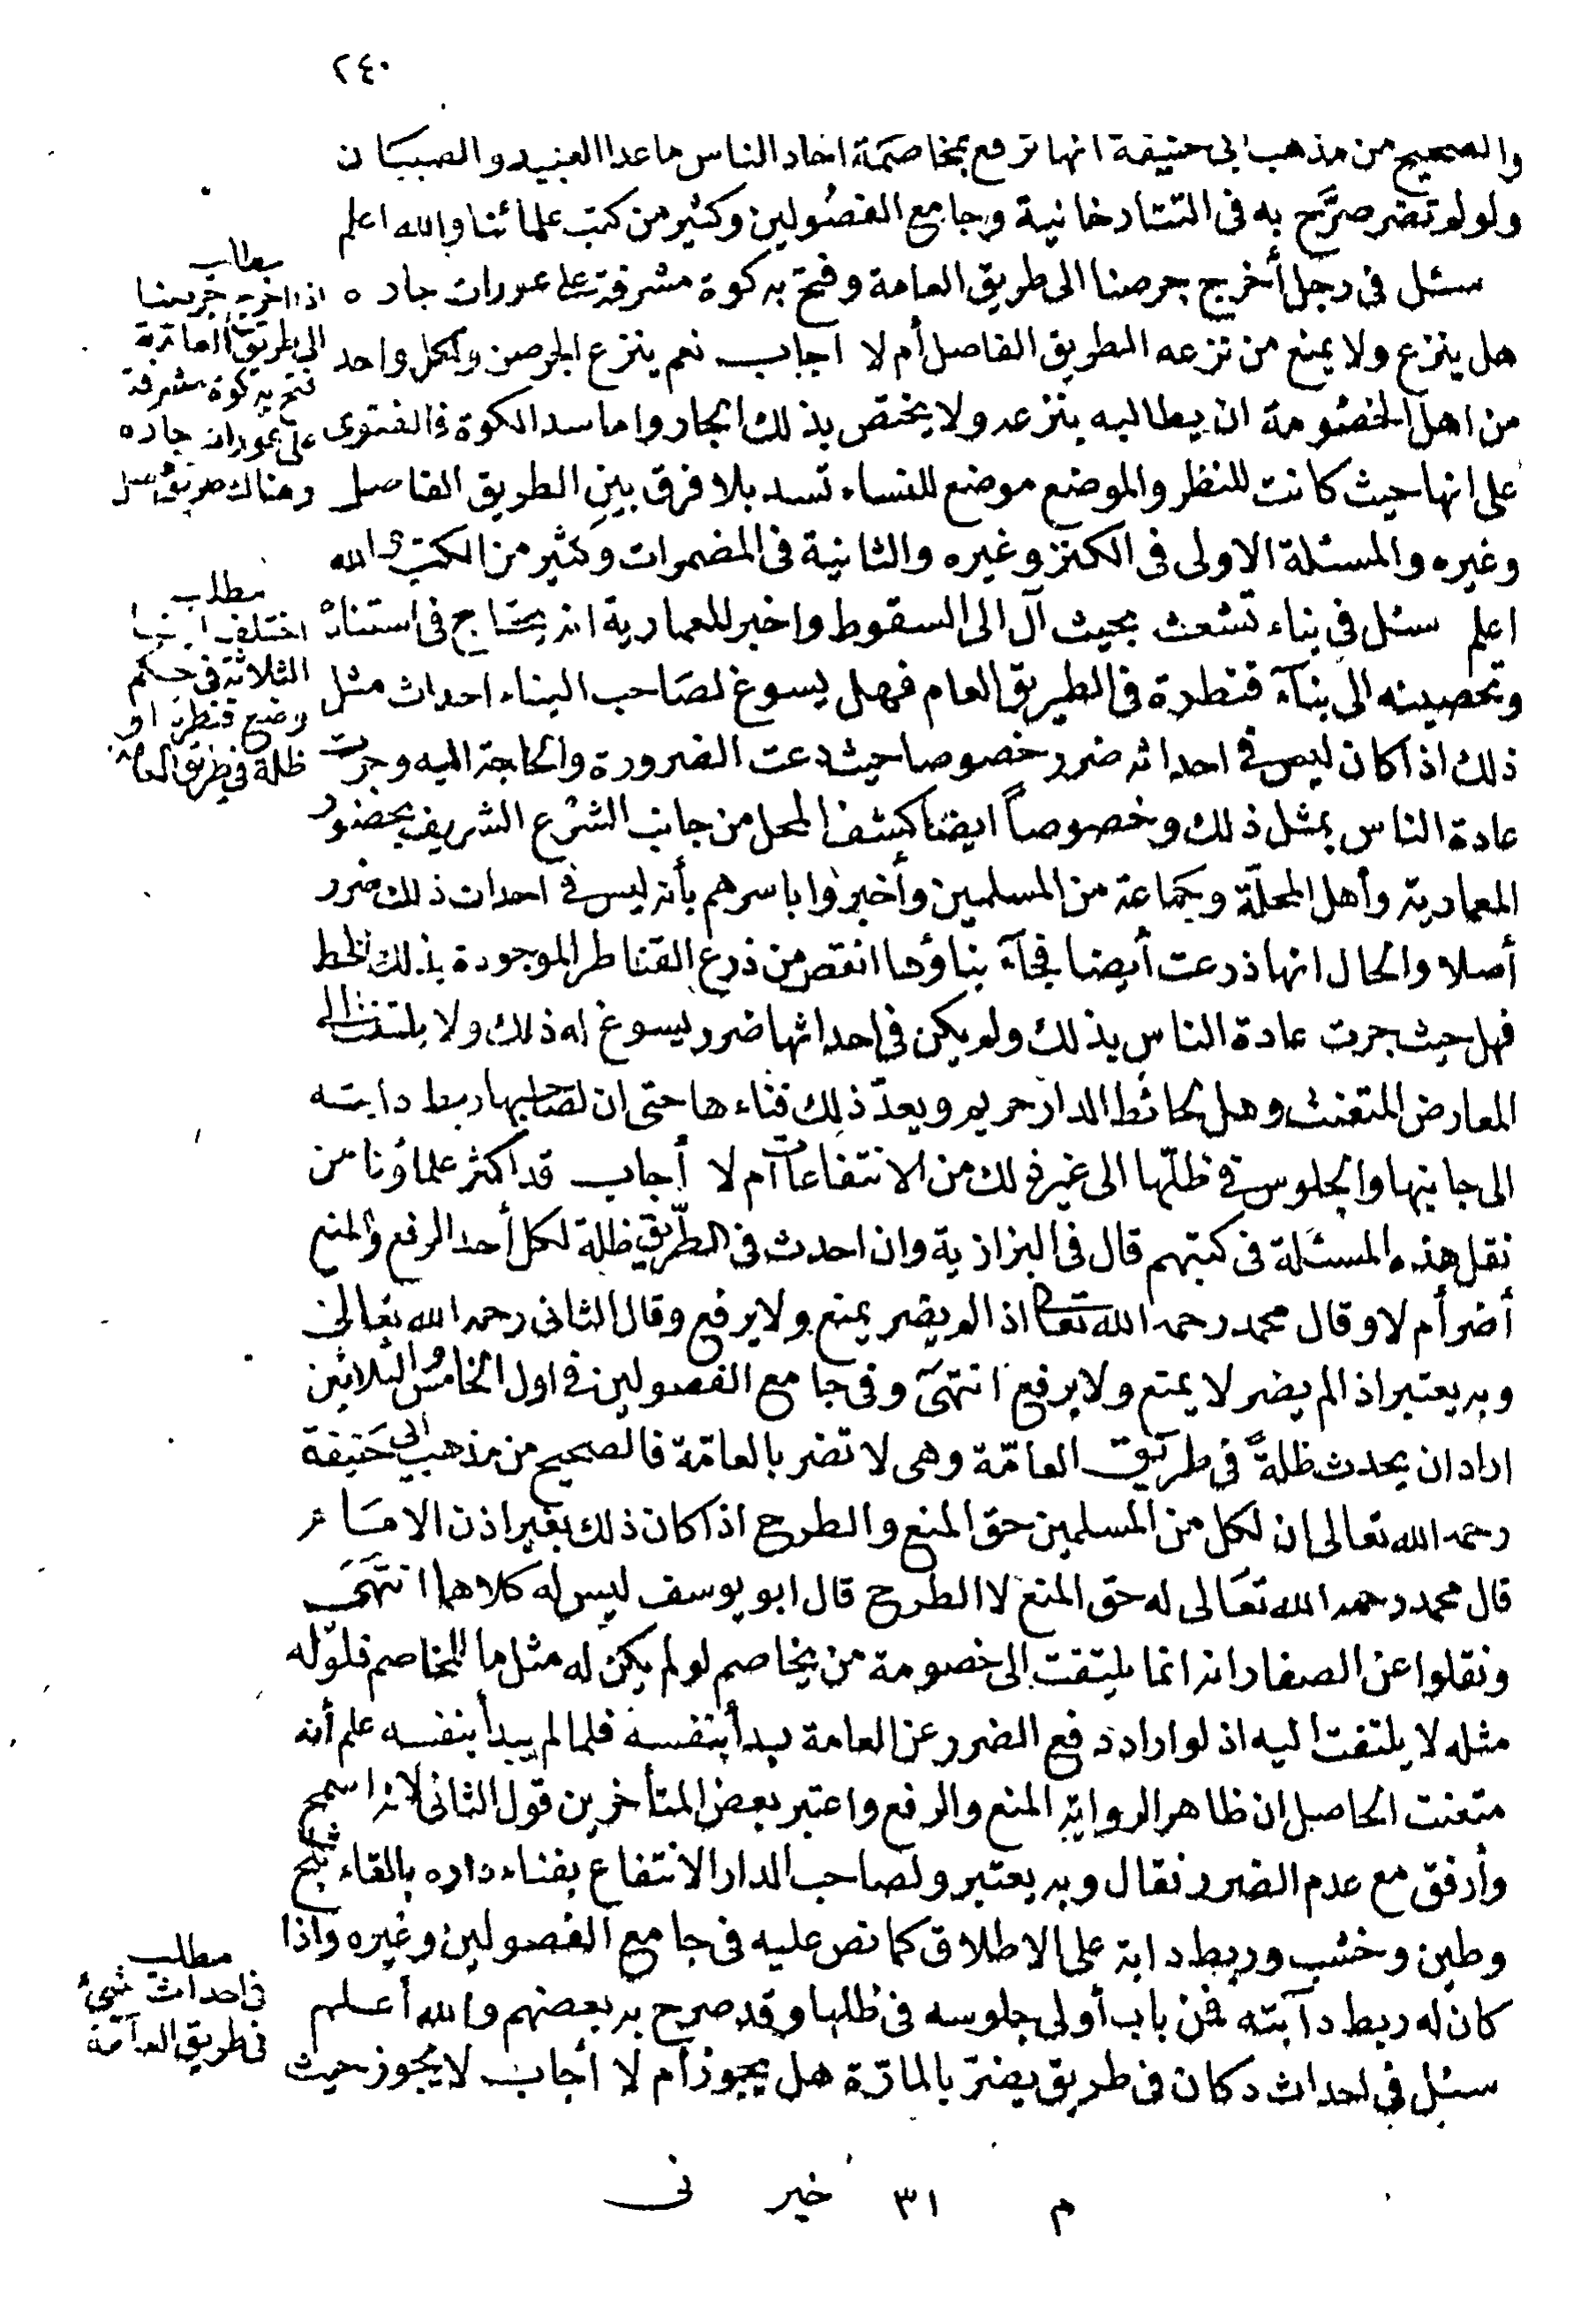 ٢٤٠
والصحيح من مذهب ابى حنيفة انها ترفع بمخاصمة احاد الناس ما عدا العبيد والصبيان
ولو لم تضر صرّح به فى التتارخانية وجامع الفصولين وكثير من كتب علمائنا والله اعلم
سئل فى رجل أخرج جرصنا الى طريق العامة وفتح به كوة مشرفة على عورات جاره
هل ينزع ولا يمنع من نزعه الطريق الفاصل أم لا اجاب نعم ينزع الجرصن ولكل واحد
من اهل الخصومة ان يطالبه بنزعه ولا يختص بذلك الجار واما سد الكوة فالفتوى
على انها حيث كانت للنظر والموضع موضع للنساء تسد بلا فرق بين الطريق الفاصل
وغيره والمسئلة الاولى فى الكنز وغيره والثانية فى المضمرات وكثير من الكتب والله
اعلم سئل فى بناء تشعث بحيث آل الى السقوط واخبر للعمارية انه يحتاج فى استناده
وتحصينه الى بناء قنطرة فى الطريق العام فهل يسوغ لصاحب البناء احداث مثل
ذلك اذا كان ليس فى احداثه ضرر خصوصا حيث دعت الضرورة والحاجة اليه وجرت
عادة الناس بمثل ذلك وخصوصاً ايضا كشف المحل من جانب الشرع الشريف بحضور
المعمارية وأهل المحلّة وجماعة من المسلمين وأخبروا باسرهم بأنه ليس فى احداث ذلك ضرر
أصلا والحال انها ذرعت أيضا فجاء بناؤها انقص من ذرع القناطر الموجودة بذلك الخط
فهل حيث جرت عادة الناس بذلك ولم يكن فى احداثها ضرر يسوغ له ذلك ولا يلتفت الى
المعارض المتعنت وهل لحائط الدار حريم ويعدّ ذلك فناءها حتى ان لصاحبها ربط دابته
الى جانبها والجلوس فى ظلّها الى غير ذلك من الانتفاعات أم لا أجاب قد اكثر علماؤنا من
نقل هذه المسئلة فى كتبهم قال فى البزازية وان احدث فى الطّريق ظلة لكل أحد الرفع والمنع
أضر أم لا وقال محمد رحمه الله تعالى اذا لم يضر يمنع ولا يرفع وقال الثانى رحمه الله تعالى
وبه يعتبر اذا لم يضر لا يمنع ولا يرفع انتهى وفى جامع الفصولين فى اول الخامس والثلاثين
اراد ان يحدث ظلةً فى طريق العامّة وهى لا تضر بالعامّة فالصحيح من مذهب ابى حنيفة
رحمه الله تعالى ان لكل من المسلمين حق المنع والطرح اذا كان ذلك بغير اذن الامام
قال محمد رحمه الله تعالى له حق المنع لا الطرح قال ابو يوسف ليس له كلاهما انتهى
ونقلوا عن الصفار انه انما يلتفت الى خصومة من يخاصم لو لم يكن له مثل ما للمخاصم فلو له
مثله لا يلتفت اليه اذ لو اراد دفع الضرر عن العامة بدأ بنفسه فلما لم يبدأ بنفسه علم أنه
متعنت الحاصل ان ظاهر الرواية المنع والرفع واعتبر بعض المتأخرين قول الثانى لانه اسمح
وأرفق مع عدم الضرر فقال وبه يعتبر ولصاحب الدار الانتفاع بفناء داره بالقاء ثلج
وطين وخشب وربط دابة على الاطلاق كما نص عليه فى جامع الفصولين وغيره واذا
كان له ربط دآبته فمن باب أولى جلوسه فى ظلها وقد صرح به بعضهم والله أعلم
سئل فى احداث دكان فى طريق يضرّ بالمارّة هل يجوز أم لا أجاب لا يجوز حيث
مطلب
اذا اخرج جرصنا
الى طريق العامة
فتح به كوة مشرفة
على عورات جاره
وهناك طريق فاصل
مطلب
اختلف
الثلاثة فى حكم
وضع قنطرة او
ظلة فى طريق العامة
مطلب
فى احداث شئ
فى طريق العآمة
م ٣١ خير نى